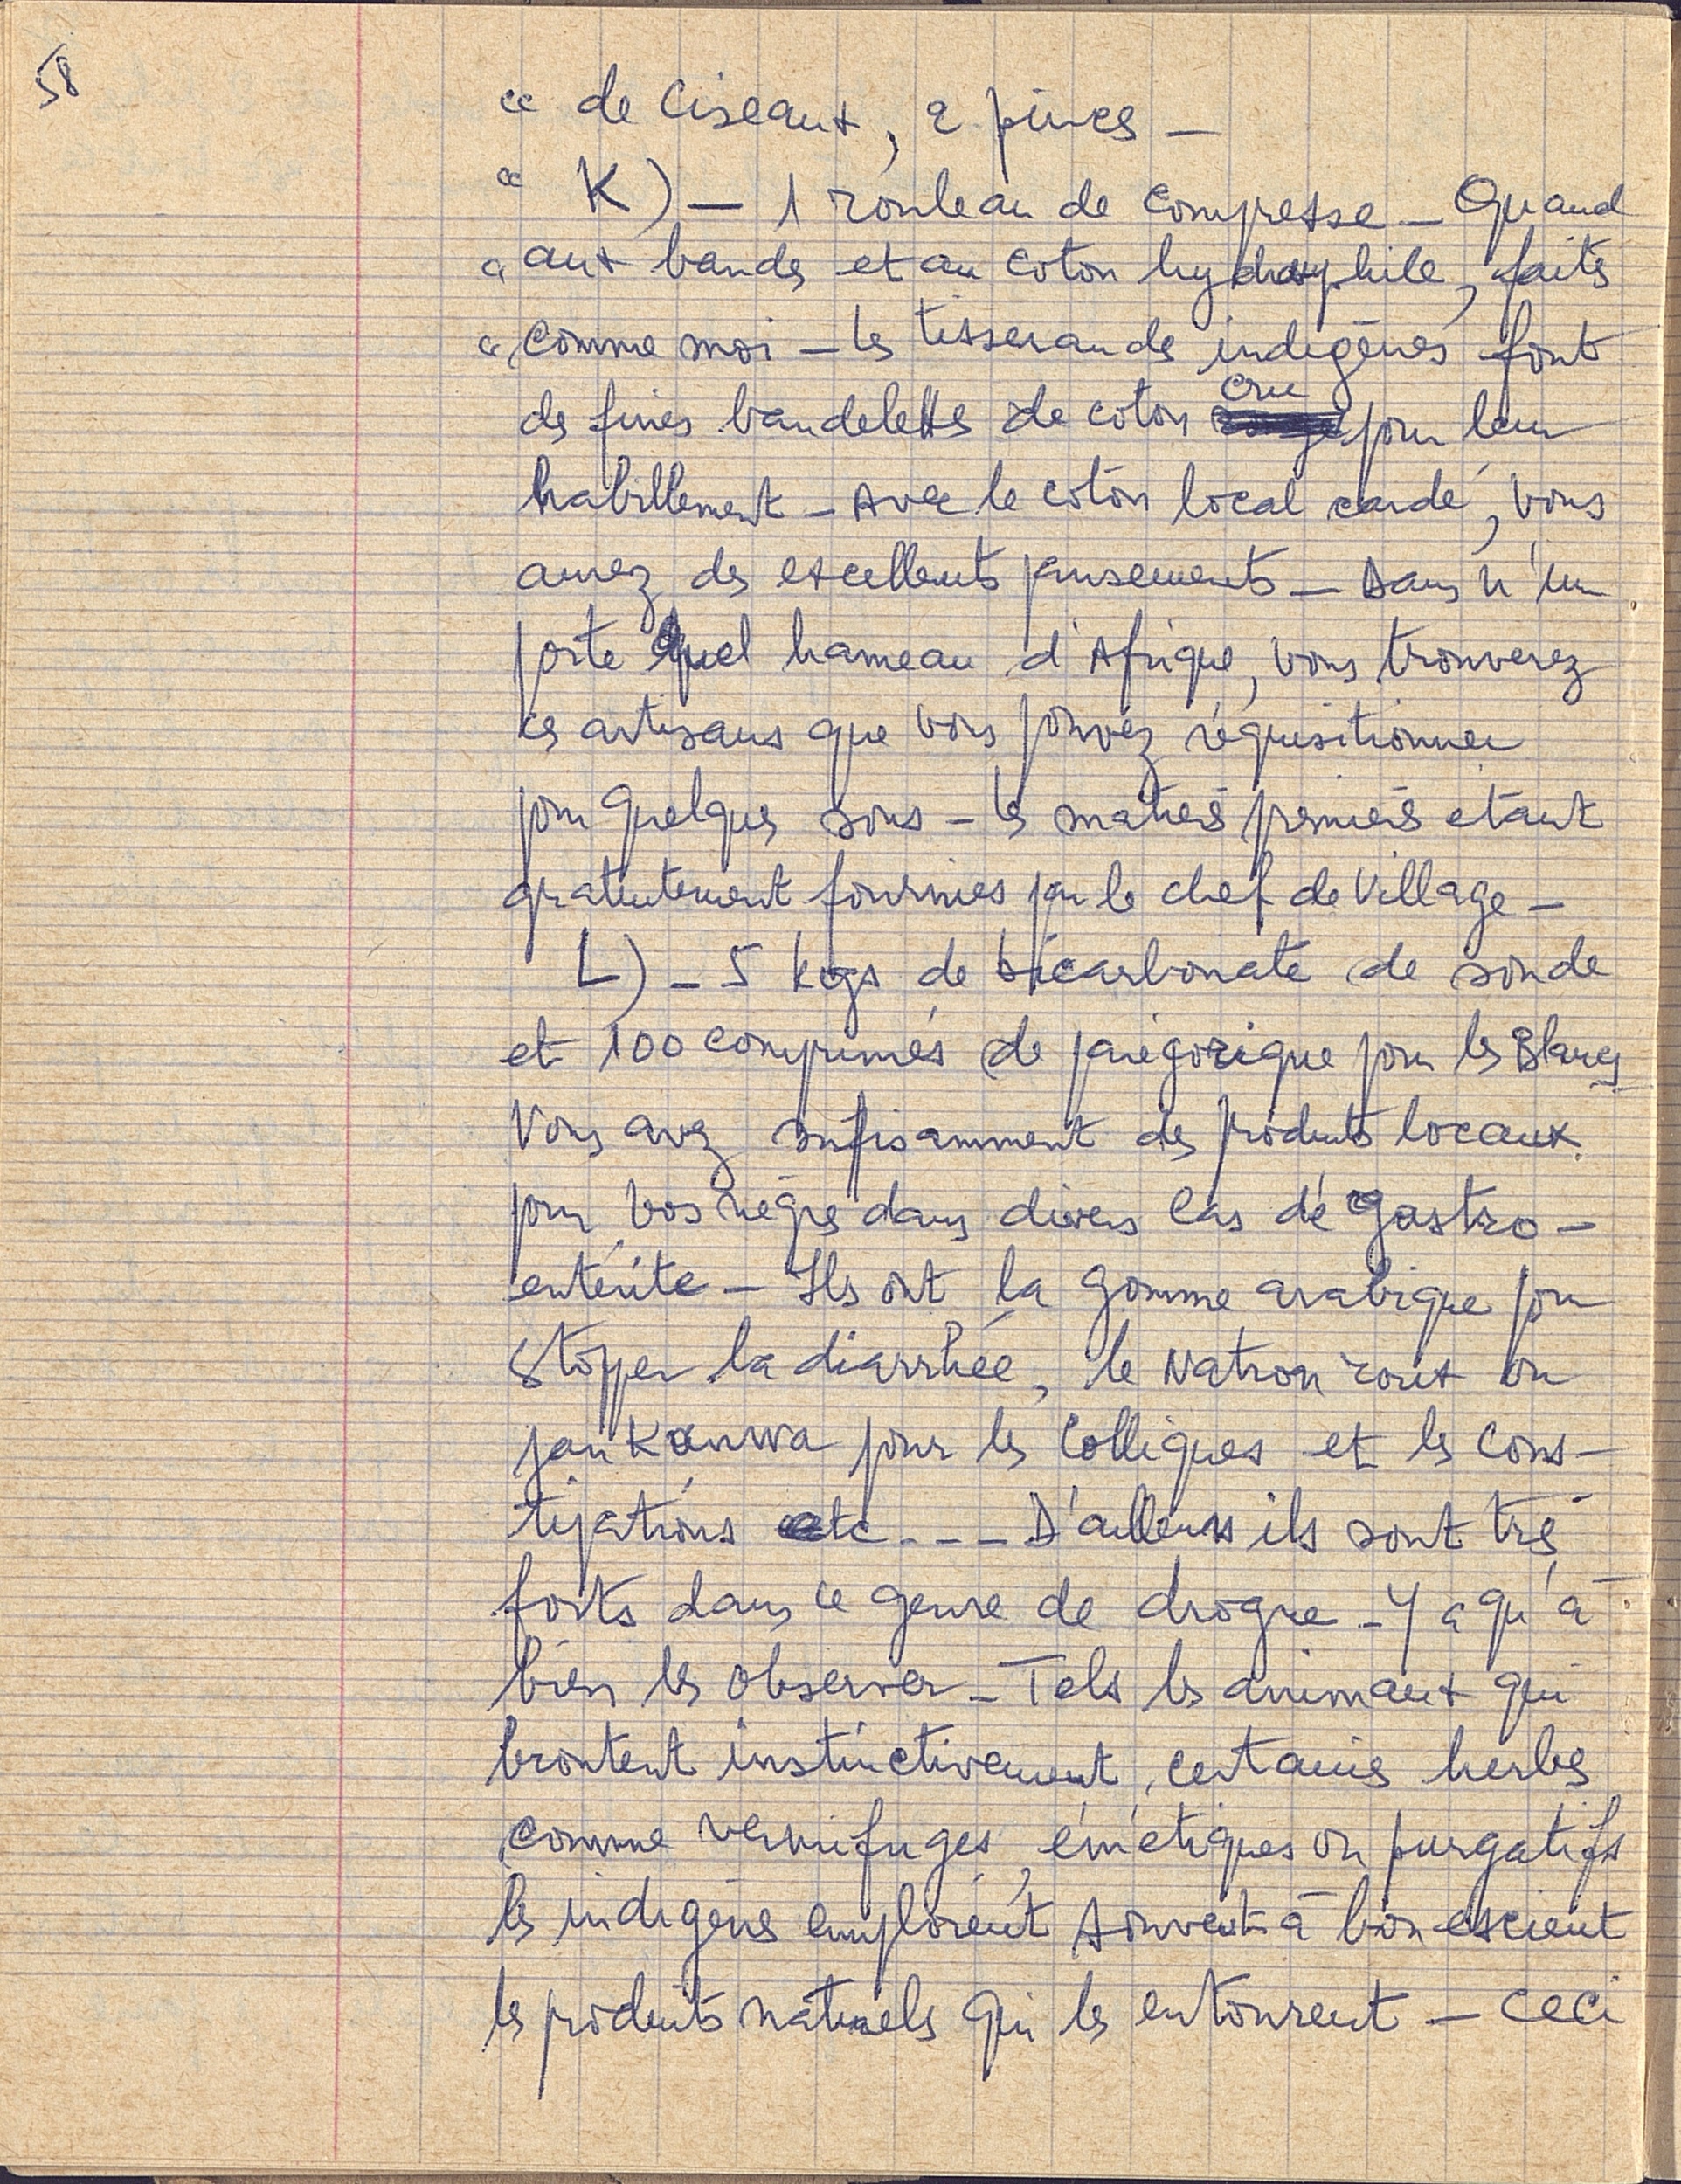 58
" de Ciseaux, 2 pinces —
" K) — 1 rouleau de compresse — Quand
" aux bandes et au coton hydrophile, faites
" comme moi — les tisserands indigènes font
des fines bandelettes de coton cru pour leur
habillement — Avec le coton local cardé, vous
aurez des excellents pansements — Dans n'im
porte quel hameau d'Afrique, vous trouverez
ces artisans que vous pouvez réquisitionner
pour quelques sous — les matières premières étant
gratuitement fournies par le chef de Village —
L) — 5 kgs de bicarbonate de soude
et 100 comprimés de parégorique pour les Blancs
Vous avez suffisamment des produits locaux
pour vos nègres dans divers cas de gastro —
entérite — Ils ont la gomme arabique pour
stopper la diarrhée, le Natron roux ou
jan Kanwa pour les colliques et les cons —
tipations etc --- D'ailleurs ils sont très
forts dans ce genre de drogue — Y a qu'à
bien les observer — Tels les animaux qui
broutent instinctivement certaines herbes
comme vermifuges, émétiques ou purgatifs
les indigènes emploient souvent à bon escient
les produits naturels qui les entourent — Ceci